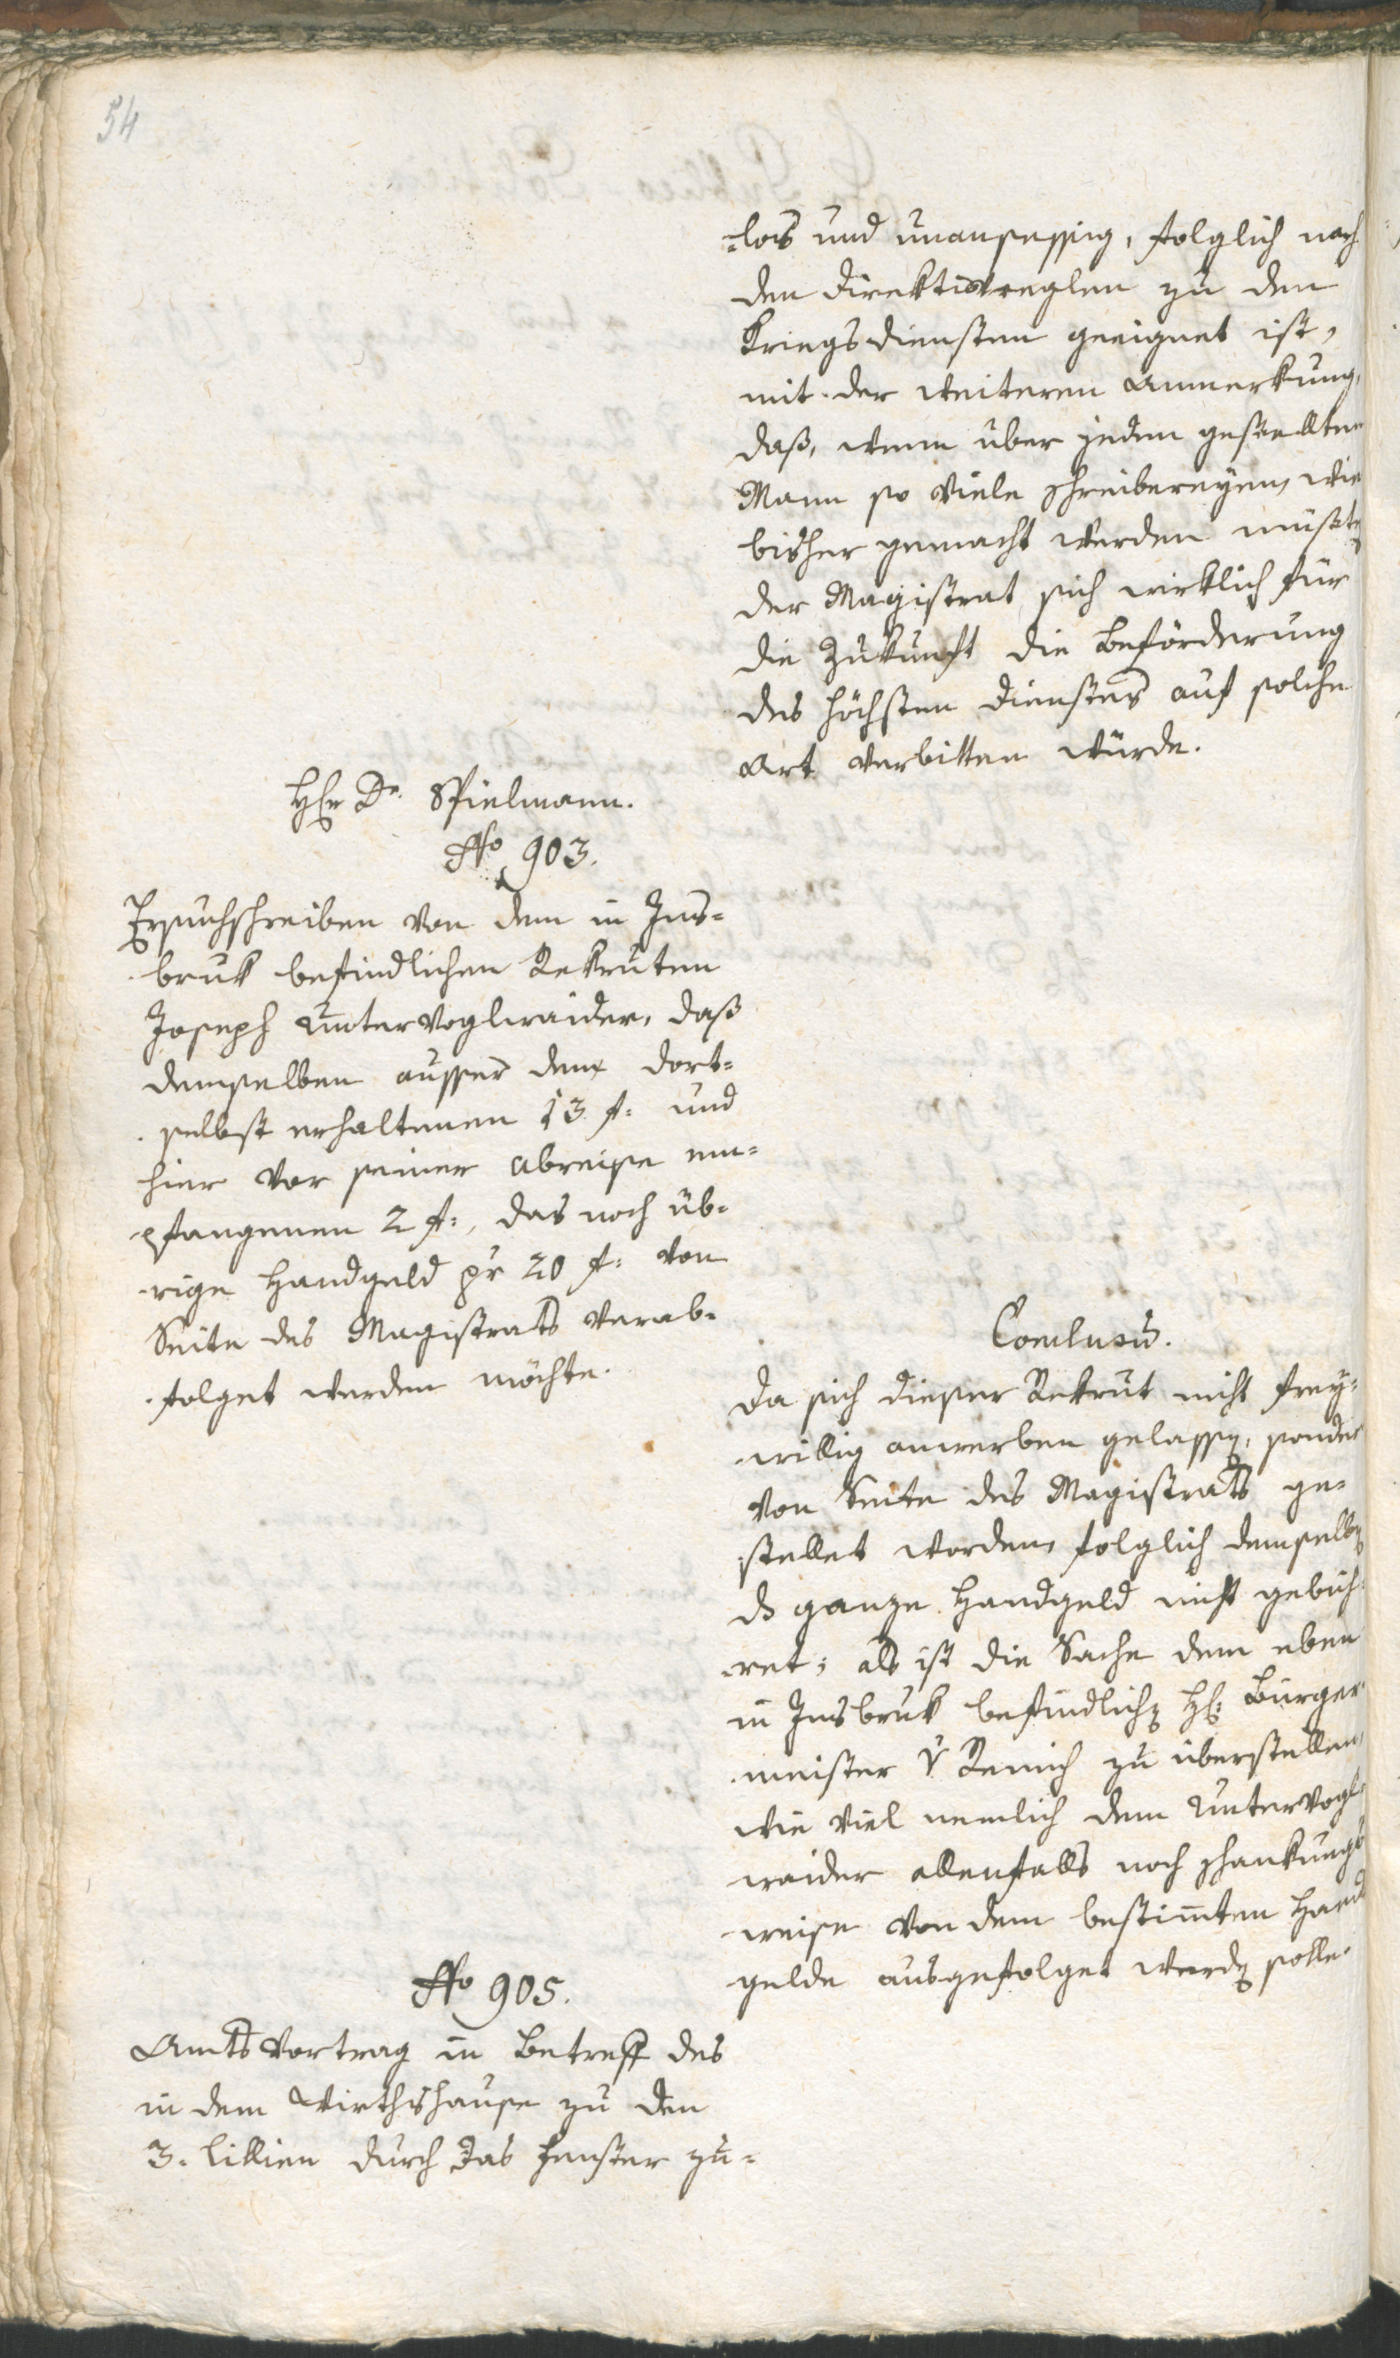 54
-los und unansessig, folglich nach
den Direktivreglen zu den
Kriegsdiensten geeignet ist,
mit der weiteren Anmerkung,
daß, wenn über jeden gestellten
Mann so viele Schreibereyen, wie
bisher gemacht werden müßten
der Magistrat sich wirklich für
die Zukunft die Beförderung
des höchsten Dienstes auf solche
Art verbitten würde.
Hr Dr. Spielmann.
No 903.
Ersuchschreiben von dem in Ins-
bruk befindlichen Rekruten
Joseph Untervoglraider, daß
demselben ausser dem dort-
selbst erhaltenen 13 f: und
hier vor seiner Abreise em-
pfangenen 2 f:, das noch üb-
rige Handgeld pr 20 f: von
Seite des Magistrats verab-
folget werden möchte.
Conclusū.
Da sich dieser Rekrut nicht frey-
willig anwerben gelassen, sonder
von Seite des Magistrats ge-
stellet worden, folglich demselben
ds ganze Handgeld nicht gebüh-
ret; als ist die Sache dem eben
in Insbruk befindlichen H: Bürger-
meister v Remich zu überstellen,
wie viel nemlich dem Untervogl-
raider allenfalls noch schankungs
weise von dem bestim̄ten Hand
gelde ausgefolget werden solle.
No 905.
Amtsvortrag in Betreff des
in dem Wirthshause zu den
3. Lillien durch das Fenster zu-